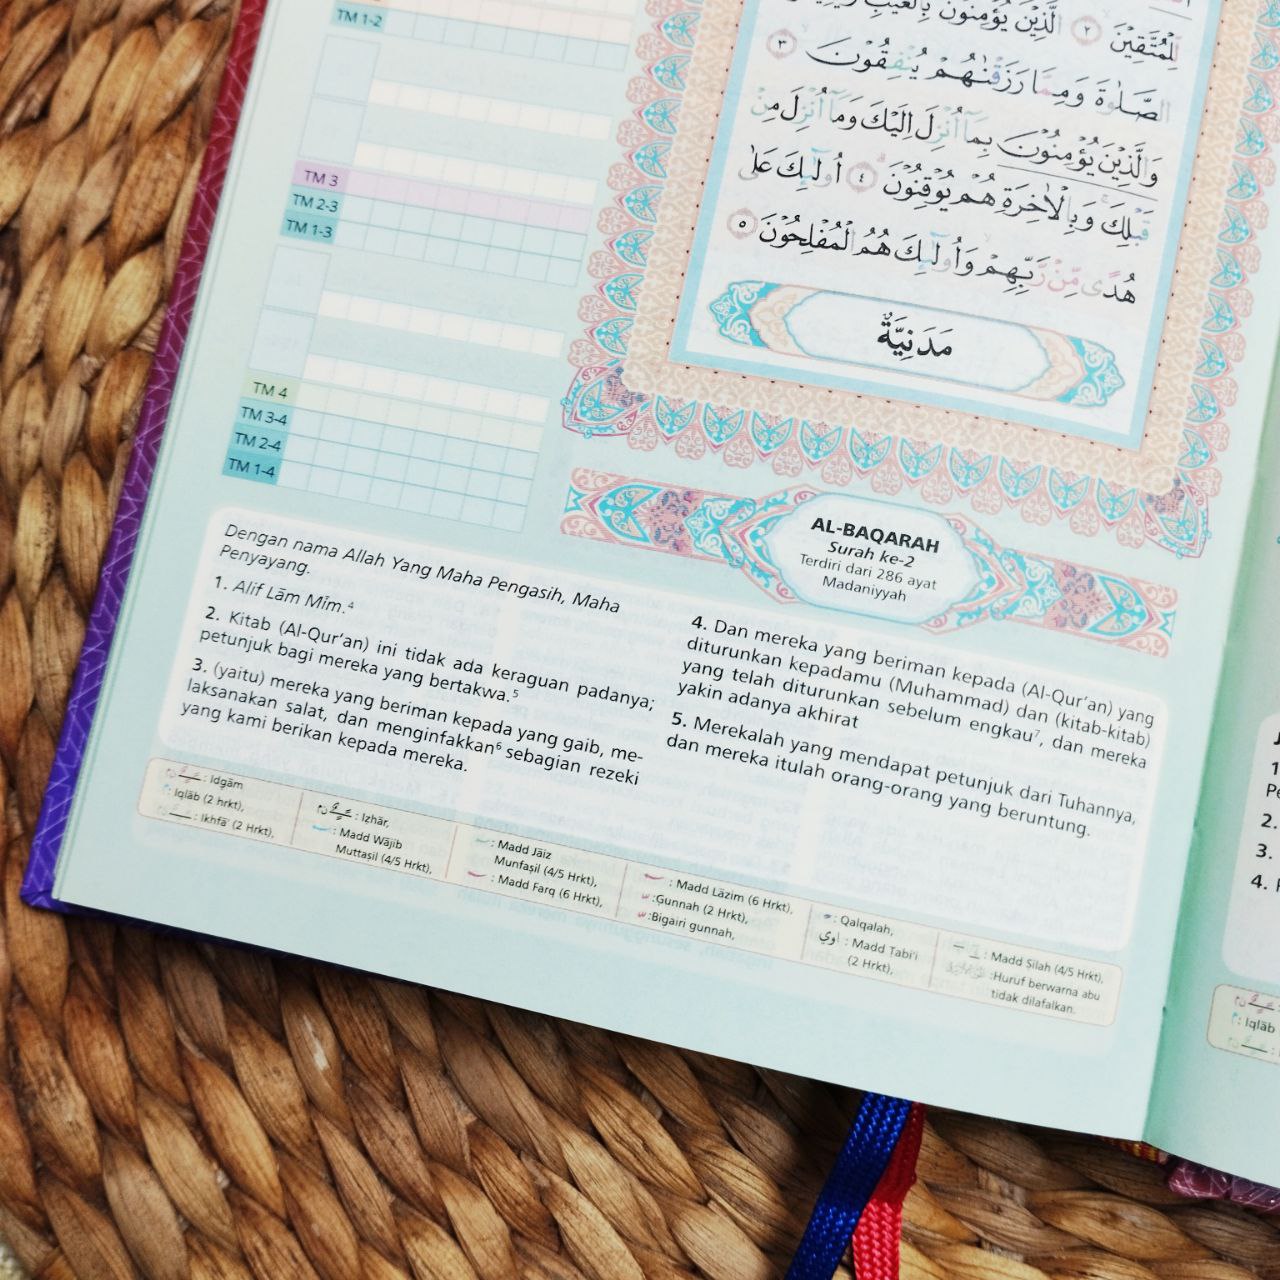 TM 1-2
TM 3
TM 2-3
TM 1-3
TM 4
TM 3-4
TM 2-4
TM 1-4
لِّلْمُتَّقِيْنَ ٢ الَّذِيْنَ يُؤْمِنُوْنَ بِالْغَيْبِ
الصَّلٰوةَ وَمِمَّا رَزَقْنٰهُمْ يُنْفِقُوْنَ ٣
وَالَّذِيْنَ يُؤْمِنُوْنَ بِمَآ اُنْزِلَ اِلَيْكَ وَمَآ اُنْزِلَ مِنْ
قَبْلِكَ ۚ وَبِالْاٰخِرَةِ هُمْ يُوْقِنُوْنَ ۗ ٤ اُولٰۤىِٕكَ عَلٰى
هُدًى مِّنْ رَّبِّهِمْ وَاُولٰۤىِٕكَ هُمُ الْمُفْلِحُوْنَ ٥
مَدَنِيَّةٌ
AL-BAQARAH
Surah ke-2
Terdiri dari 286 ayat
Madaniyyah
Dengan nama Allah Yang Maha Pengasih, Maha
Penyayang.
1. Alif Lām Mīm.⁴
2. Kitab (Al-Qur’an) ini tidak ada keraguan padanya;
petunjuk bagi mereka yang bertakwa.⁵
3. (yaitu) mereka yang beriman kepada yang gaib, me-
laksanakan salat, dan menginfakkan⁶ sebagian rezeki
yang kami berikan kepada mereka.
4. Dan mereka yang beriman kepada (Al-Qur’an) yang
diturunkan kepadamu (Muhammad) dan (kitab-kitab)
yang telah diturunkan sebelum engkau⁷, dan mereka
yakin adanya akhirat
5. Merekalah yang mendapat petunjuk dari Tuhannya,
dan mereka itulah orang-orang yang beruntung.
: Idgām
: Iqlāb (2 hrkt),
: Ikhfā' (2 Hrkt),
: Izhār,
: Madd Wājib
Muttaṣil (4/5 Hrkt),
: Madd Jāiz
Munfaṣil (4/5 Hrkt),
: Madd Farq (6 Hrkt),
: Madd Lāzim (6 Hrkt),
:Gunnah (2 Hrkt),
:Bigairi gunnah,
: Qalqalah,
اوي : Madd Ṭabi'i
(2 Hrkt),
: Madd Ṣilah (4/5 Hrkt),
:Huruf berwarna abu
tidak dilafalkan.
1
2.
3.
4.
: Iqlāb